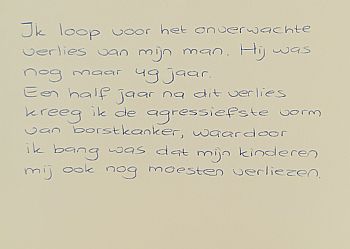 Ik loop voor het onverwachte
verlies van mijn man. Hij was
nog maar 49 jaar.
Een half jaar na dit verlies
kreeg ik de agressiefste vorm
van borstkanker, waardoor
ik bang was dat mijn kinderen
mij ook nog moesten verliezen.